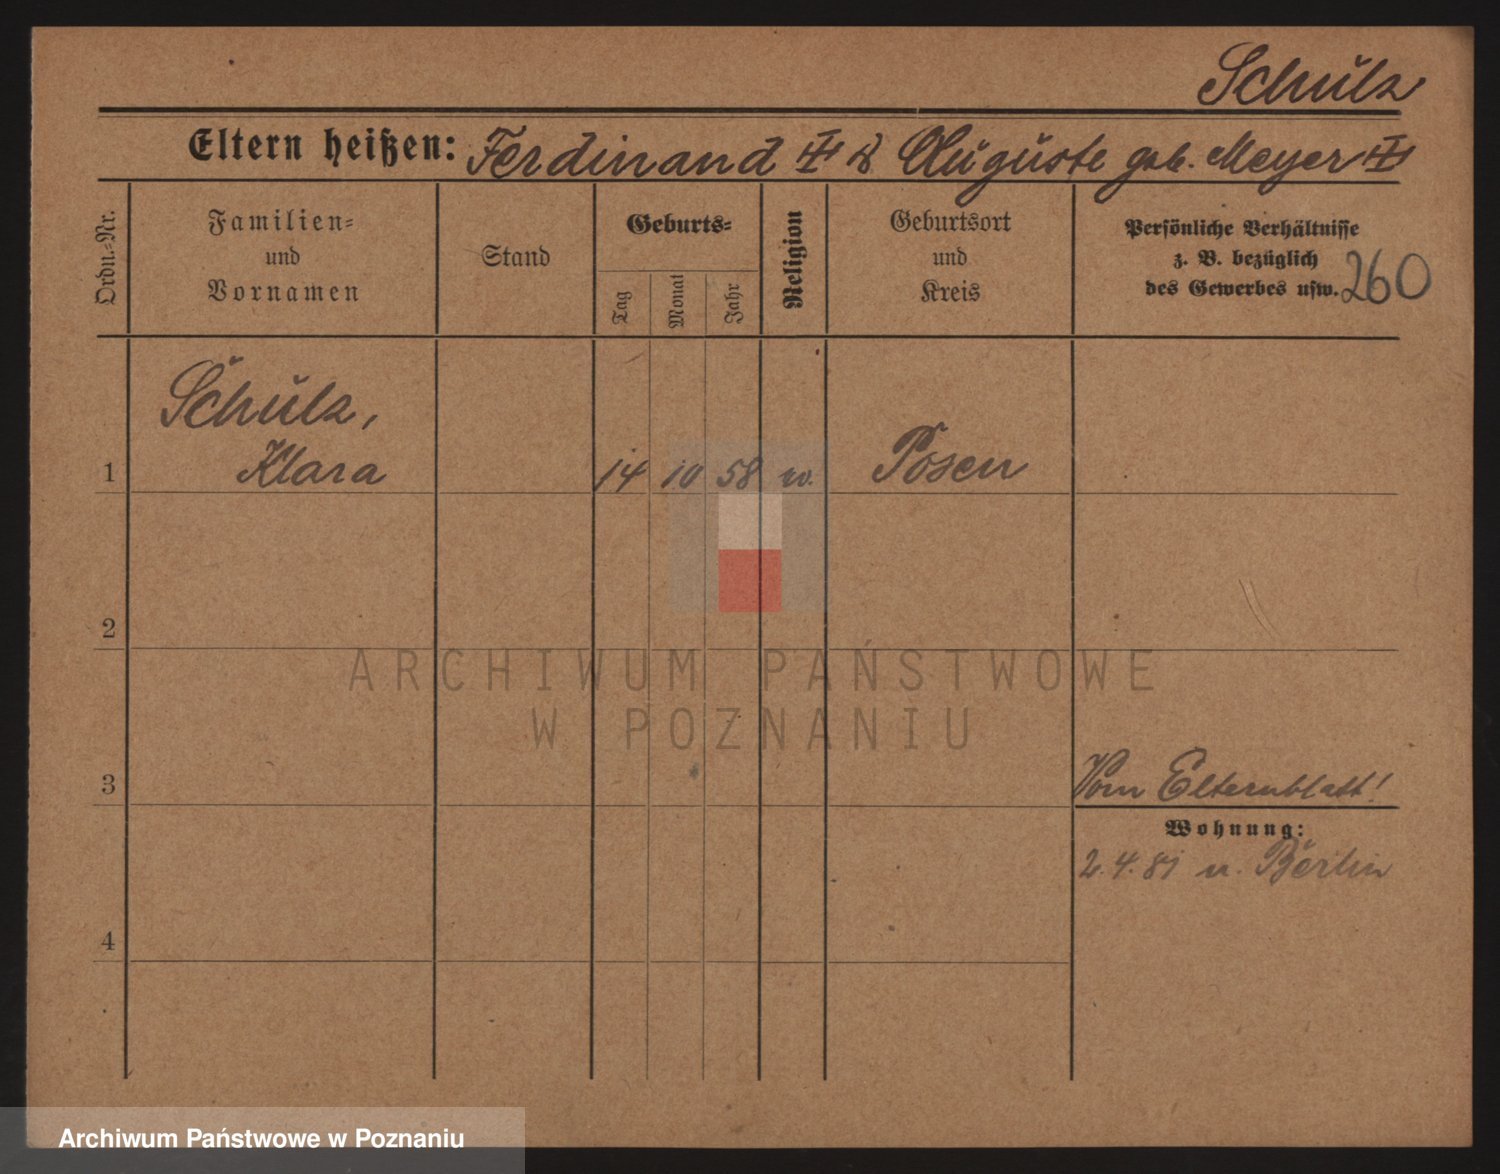 Schulz
Eltern heißen: Ferdinand & Auguste geb. Meyer
Ordn.=Nr.
Familien=
und
Vornamen
Stand
Geburts=
Tag
Monat
Jahr
Religion
Geburtsort
und
Kreis
Persönliche Verhältnisse
z. B. bezüglich
des Gewerbes usw.
260
Schulz,
1 Klara 14 10 58 Posen
2
3
Vom Elternblatt!
Wohnung:
2.4.81 n. Berlin
4
ARCHIWUM PAŃSTWOWE
W POZNANIU
Archiwum Państwowe w Poznaniu